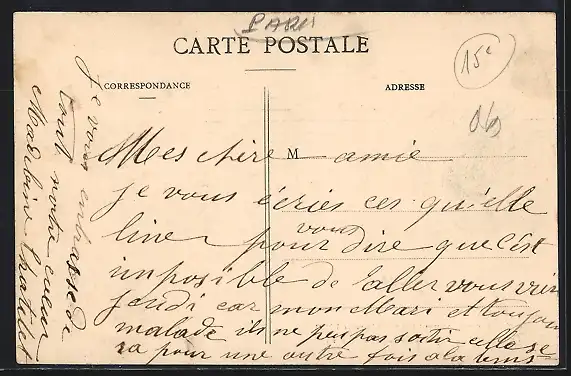 PARIS
CARTE POSTALE
15e
CORRESPONDANCE
ADRESSE
M
Mes chère amie
je vous écries ces qu'elle
line pour vous dire que c'est
imposible de l'aller vous voir
jeudi car mon Mari et toujour
malade ils ne peu pas sortir ella se
ra pour une autre fois a la tems
je vous enbrasse de
tout notre cueur